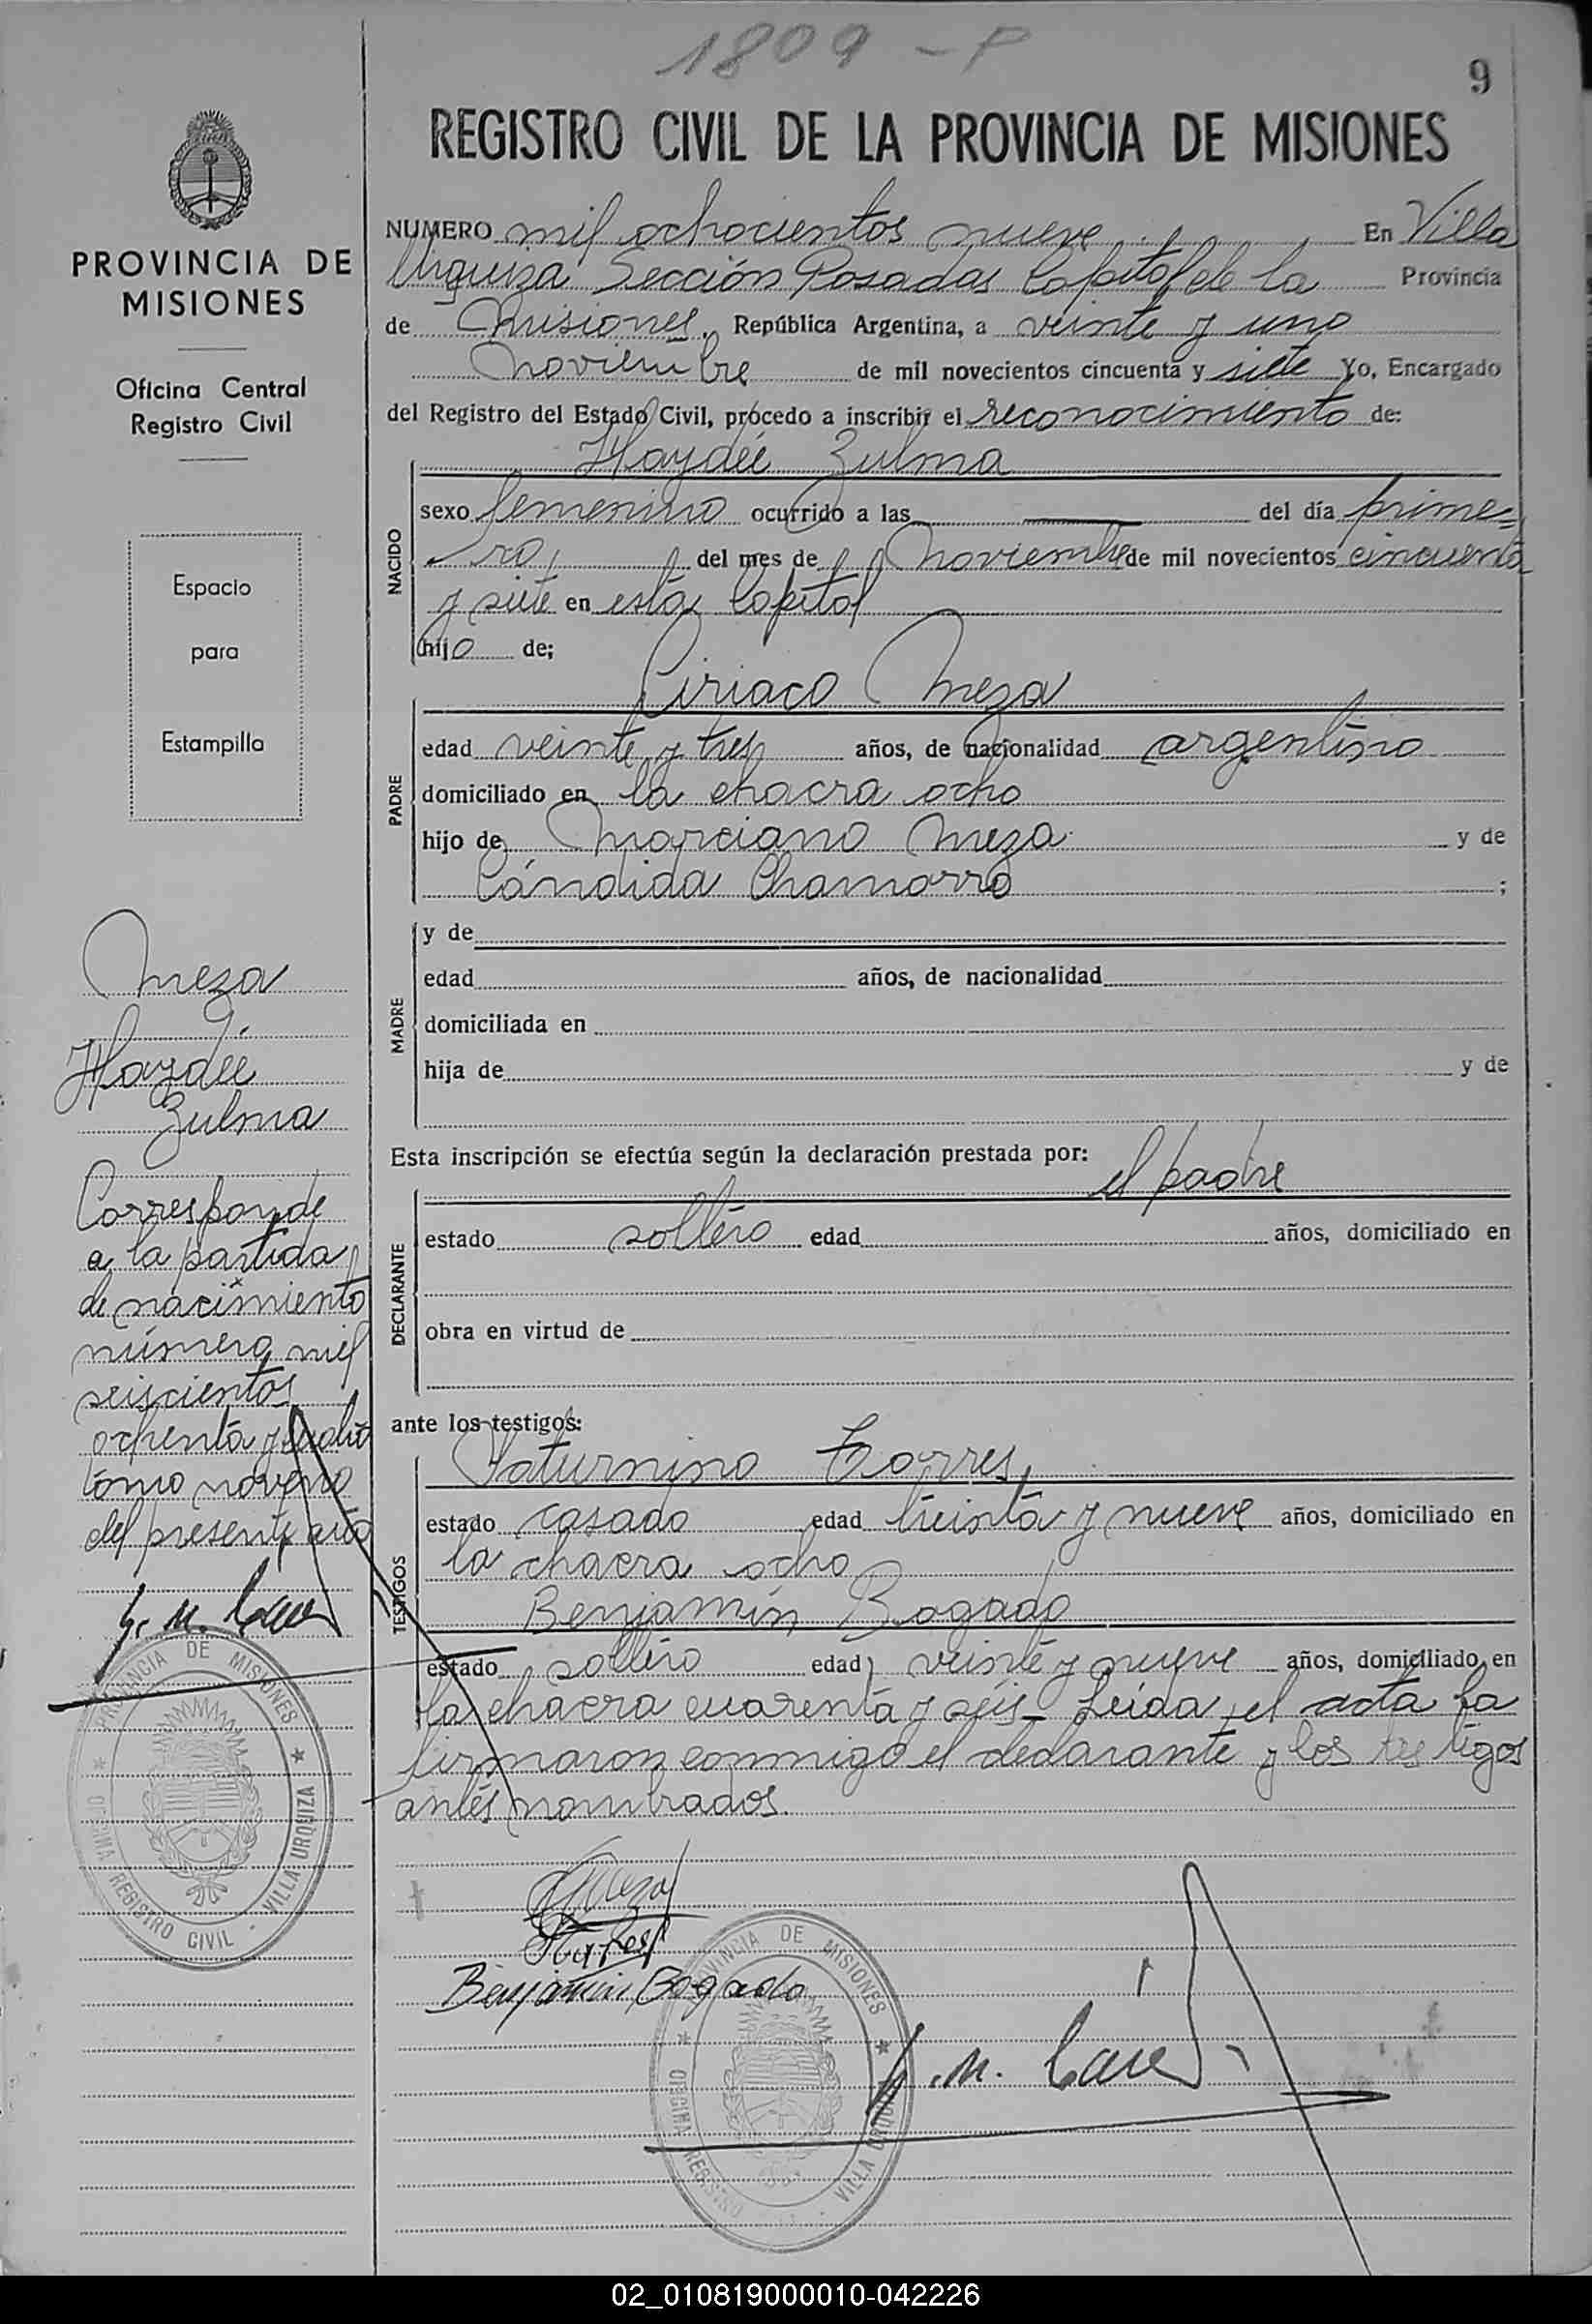 1809 - P
9
REGISTRO CIVIL DE LA PROVINCIA DE MISIONES
PROVINCIA DE
MISIONES
Oficina Central
Registro Civil
Espacio
para
Estampilla
Meza
Haydée
Zulma
Corresponde
a la partida
de nacimiento
número mil
seiscientos
ochenta y cuatro
tomo noveno
del presente año
PROVINCIA DE MISIONES
OFICINA REGISTRO CIVIL - VILLA URQUIZA
NUMERO mil ochocientos nueve En Villa
Urquiza Sección Posadas Capital de la Provincia
de Misiones, República Argentina, a veinte y uno
Noviembre de mil novecientos cincuenta y siete Yo, Encargado
del Registro del Estado Civil, procedo a inscribir el reconocimiento de:
Haydée Zulma
NACIDO
sexo femenino ocurrido a las del día prime=
ro, del mes de Noviembre de mil novecientos cincuenta
y siete en esta Capital
hijo de;
Ciriaco Meza
PADRE
edad veinte y tres años, de nacionalidad argentino
domiciliado en la chacra ocho
hijo de Marciano Meza y de
Cándida Chamorro ;
MADRE
y de
edad años, de nacionalidad
domiciliada en
hija de y de
Esta inscripción se efectúa según la declaración prestada por:
el padre
DECLARANTE
estado soltero edad años, domiciliado en
obra en virtud de
ante los testigos:
Saturnino Torres,
TESTIGOS
estado casado edad treinta y nueve años, domiciliado en
la chacra ocho
Benjamín Bogado
estado soltero edad veinte y nueve años, domiciliado en
la chacra cuarenta y seis - Leída el acta la
firmaron conmigo el declarante y los testigos
antes nombrados.
Meza
Benjamin Bogado
PROVINCIA DE MISIONES
OFICINA REGISTRO VILLA URQUIZA
02_010819000010-042226